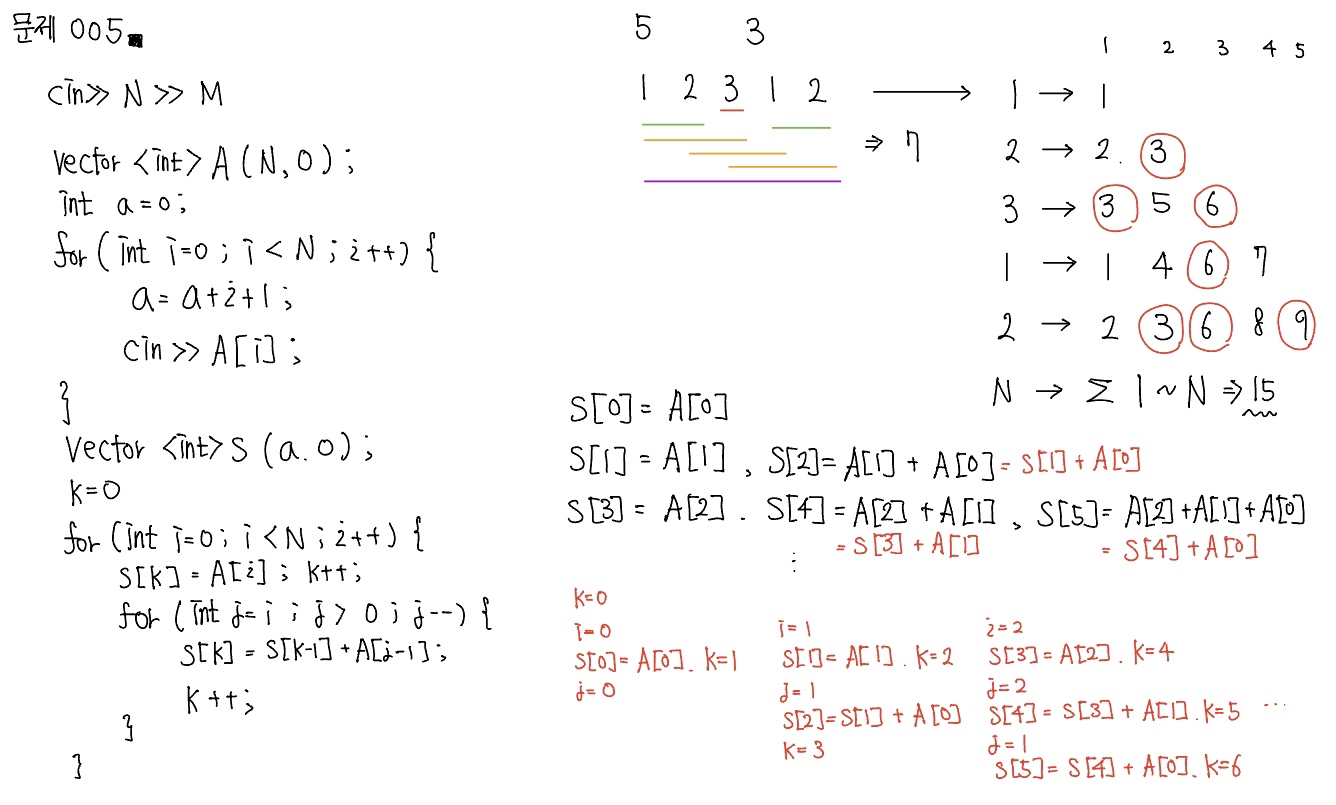 문제 005.
cin>> N >> M
vector <int> A (N,0) ;
int a=0 ;
for ( int i=0 ; i < N ; i++) {
a= a+i+1 ;
cin >> A[i] ;
}
vector <int> S (a.0) ;
k=0
for (int i=0 ; i <N ; i++) {
S[k] = A[i] ; k++;
for (int j=i ; j > 0 ; j--) {
S[k] = S[k-1] +A[j-1] ;
k++;
}
}
5 3
1 2 3 1 2
⇒ 7
1 2 3 4 5
1 → 1
2 → 2. 3
3 → 3 5 6
1 → 1 4 6 7
2 → 2 3 6 8 9
N → Σ 1 ~ N ⇒ 15
S[0] = A[0]
S[1] = A[1] , S[2]= A[1] + A[0] = S[1] + A[0]
S[3] = A[2] . S[4] = A[2] + A[1] , S[5]= A[2]+A[1]+A[0]
= S[3] + A[1] = S[4] +A[0]
⋮
k=0
i=0
S[0]= A[0]. k=1
j=0
i=1
S[1]= A[1] . k=2
j=1
S[2]=S[1] + A[0]
k=3
i=2
S[3]=A[2] . k=4
j=2
S[4] = S[3] + A[1] . k=5 ...
j=1
S[5]= S[4] + A[0]. k=6